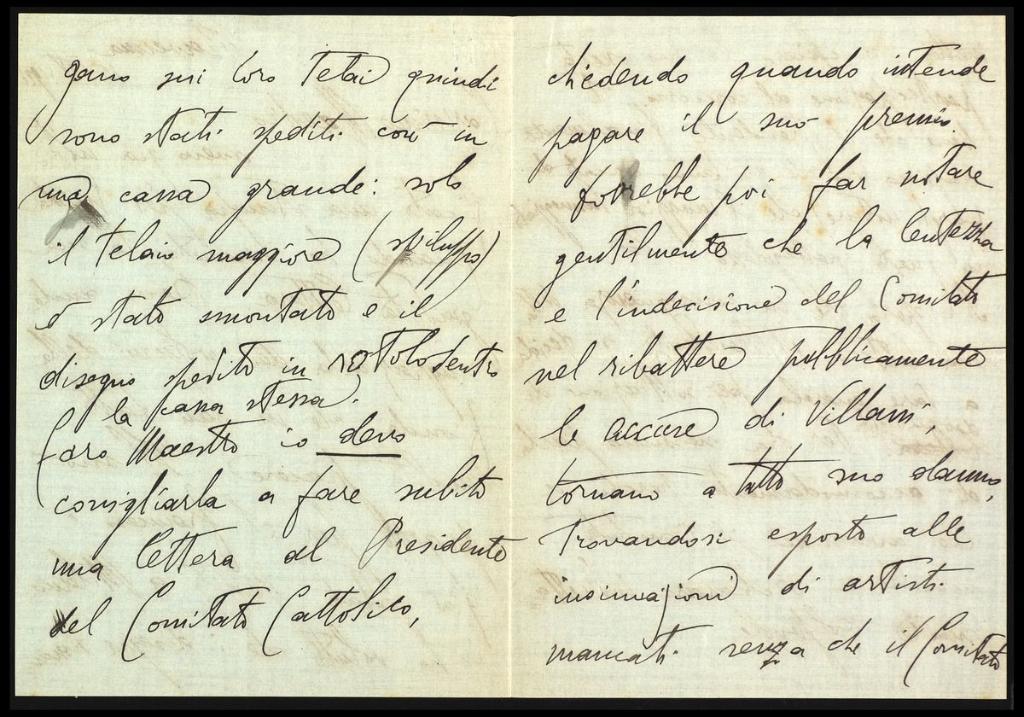 gano sui loro telai quindi
sono stati spediti così in
una cassa grande: solo
il telaio maggiore (sviluppo)
è stato smontato e il
disegno spedito in rotolo dentro
la cassa stessa.
Caro Maestro io devo
consigliarla a fare subito
una lettera al Presidente
del Comitato Cattolico,
chiedendo quando intende
pagare il suo premio.
Potrebbe poi far notare
gentilmente che la lentezza
e l'indecisione del Comitato
nel ribattere pubblicamente
le accuse di Villani,
tornano a tutto suo danno,
trovandosi esposto alle
insinuazioni di artisti
mancati senza che il Comitato